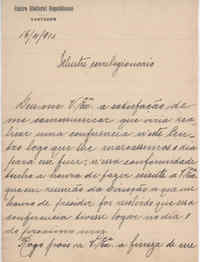 Centro Eleitoral Republicano
SANTAREM
16/4/911
Illustre correligionario
Deu-nos V. Exª a satisfação de
me communicar que viria rea-
lizar uma conferencia n'este Cen-
tro logo que lhe marassemos o dia
para esse fim; n'essa conformidade
tenho a honra de fazer sciente a V. Exª
que em reunião da Direcção a que me
honro de presidir foi resolvido que essa
conferencia tivesse logar no dia 1
do proximo mez.
Rogo pois a V. Exª a fineza de me